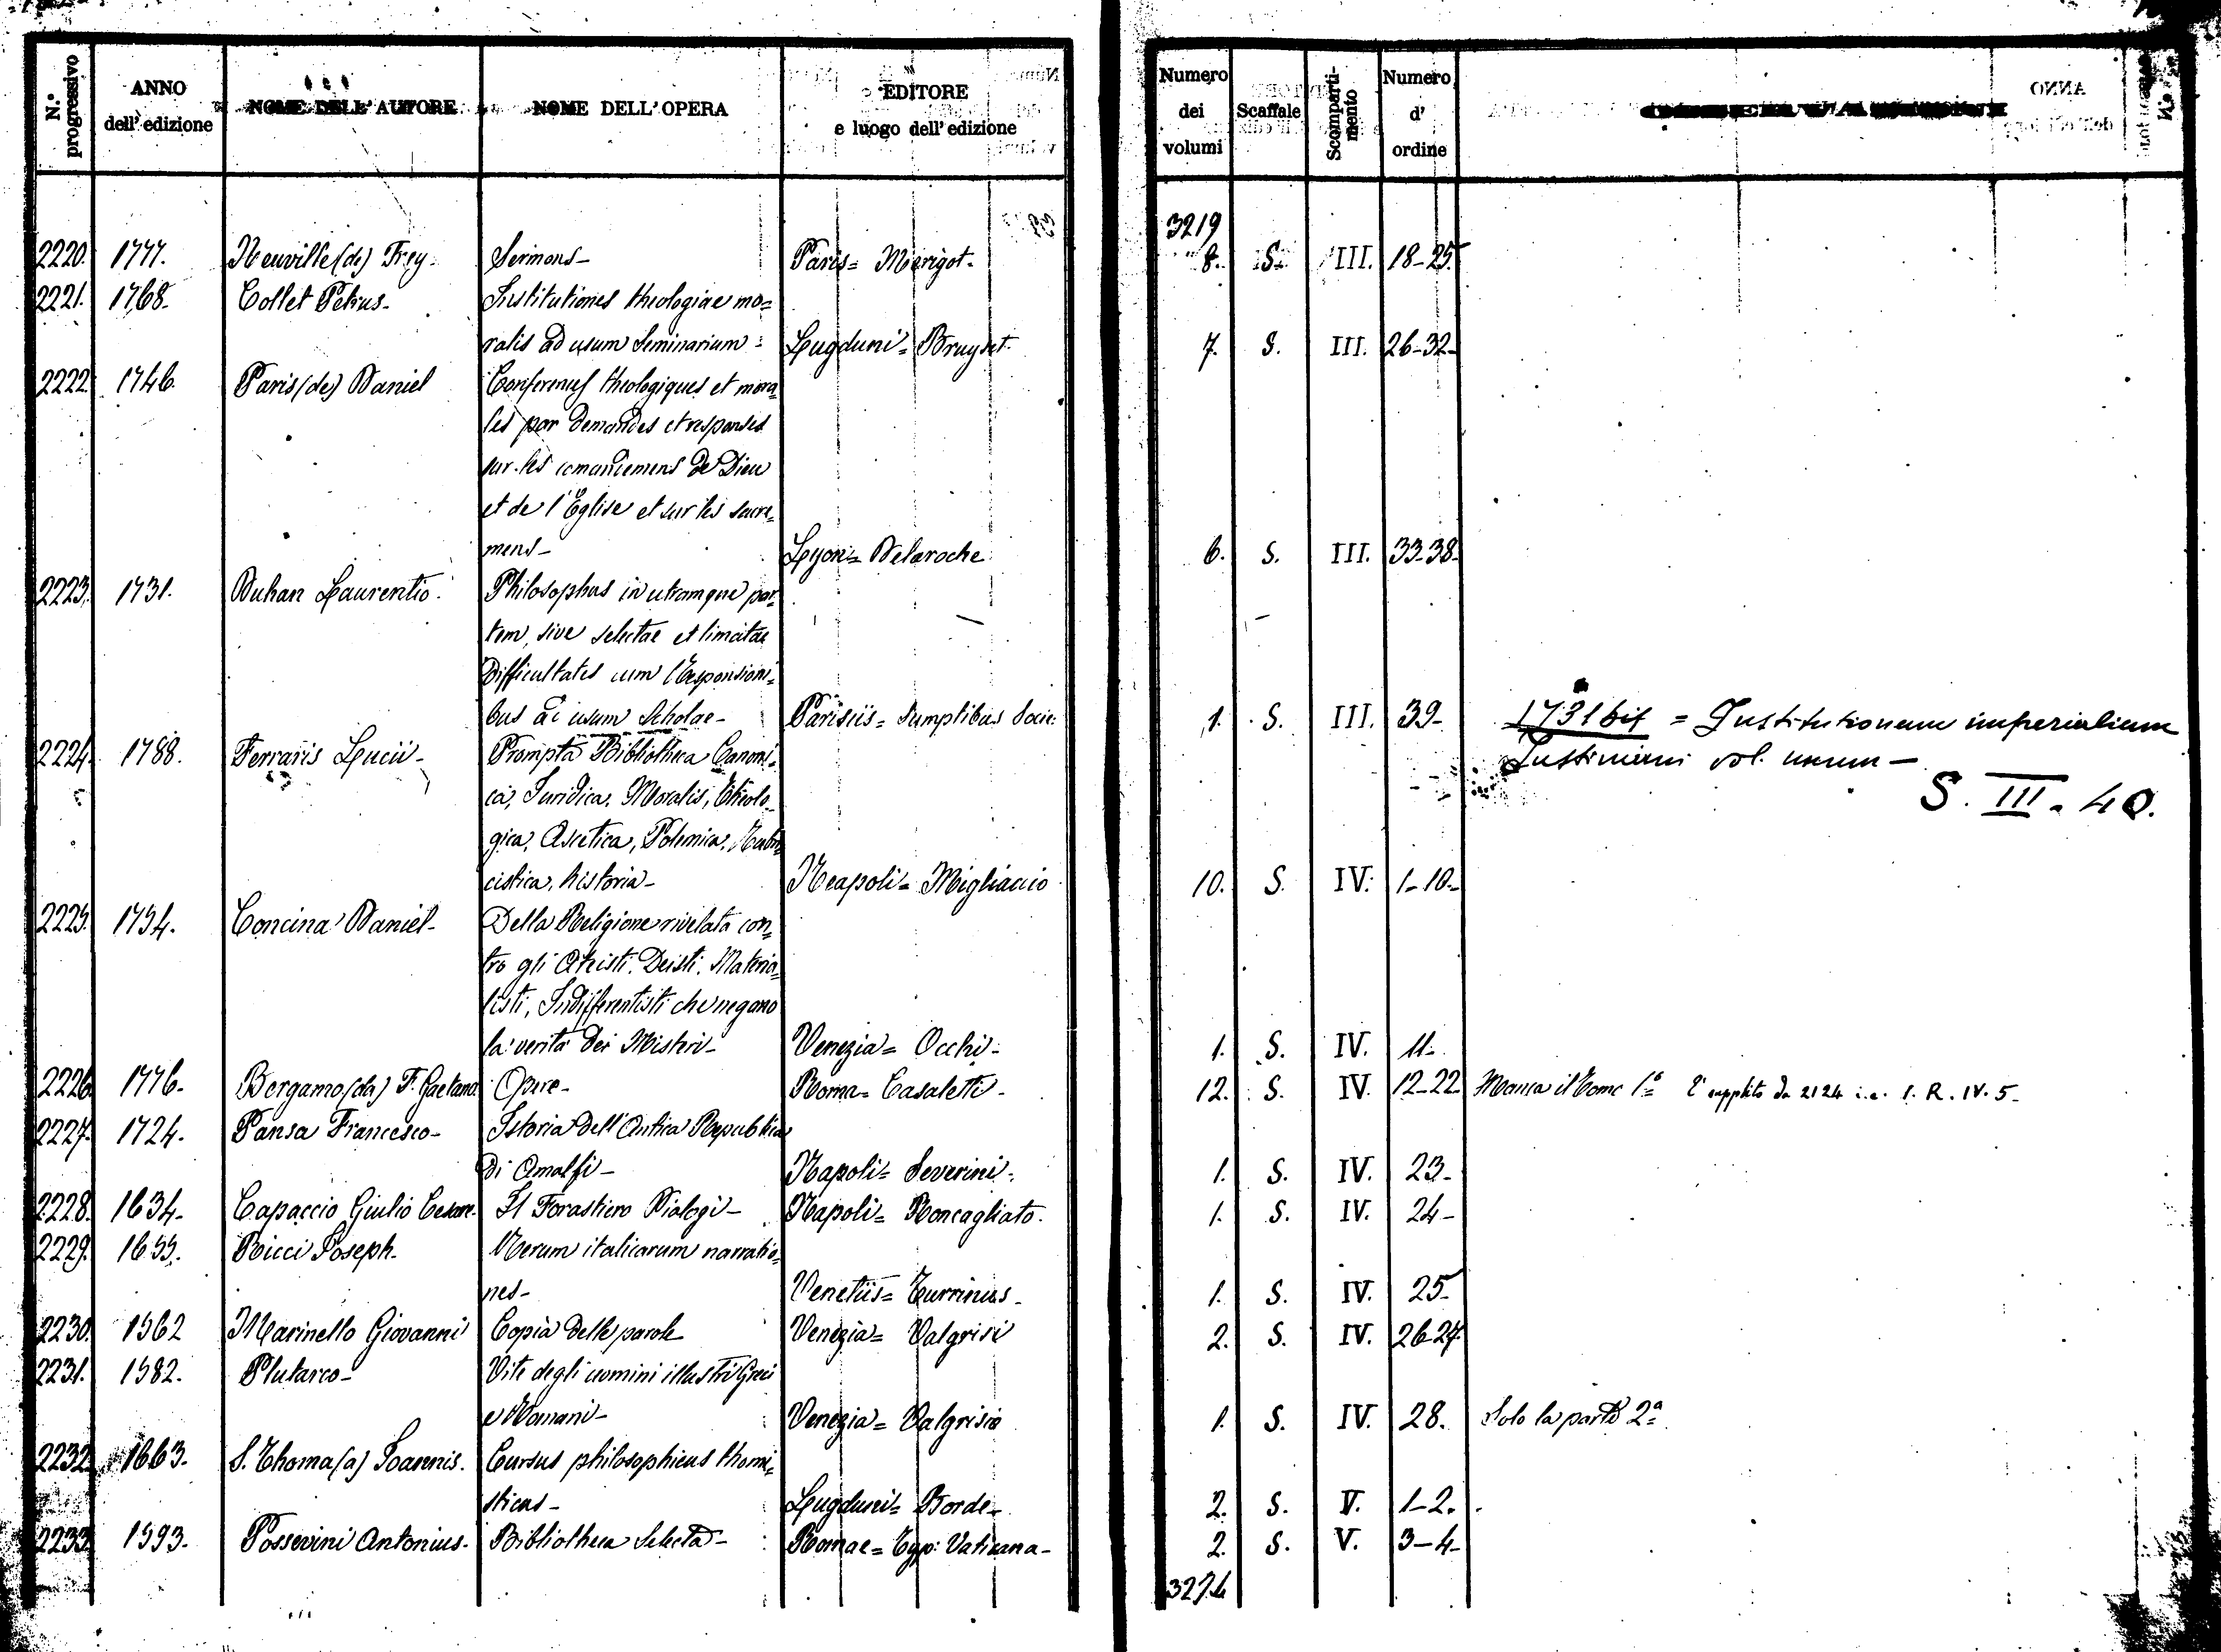 N.° progressivo | ANNO dell' edizione | NOME DELL' AUTORE | NOME DELL' OPERA | EDITORE e luogo dell' edizione | Numero dei volumi | Scaffale | Scomparti-mento | Numero d' ordine
3219
2220. 1777. Neuville (de) Frey. Sermons- Paris= Merigot. 8. S. III. 18-25.
2221. 1768. Collet Petrus- Institutiones theologiae mo=
ralis ad usum Seminarium- Lugduni= Bruyset. 7. S. III. 26-32-
2222. 1746. Paris (de) Daniel Conferences theologiques et mora=
les par demandes et responses
sur les comandemens de Dieu
et de l'Église et sur les sacre=
mens- Lyon= Delaroche 6. S. III. 33-38-
2223. 1731. Duhan Laurentio. Philosophus in utramque par=
tem, sive selectae et limitatae
difficultates cum Responsioni=
bus ad usum Scholae- Parisiis= Sumptibus Socie: 1. S. III. 39- 1731 bis = Institutionum imperialium
Justiniani vol. unum-
S. III. 40.
2224. 1788. Ferraris Lucii- Prompta Bibliotheca Canoni=
ca, Juridica, Moralis, Theolo=
gica, Ascetica, Polemica, Rubri=
cistica, historia- Neapoli= Migliaccio 10. S. IV. 1-10-
2225. 1754. Concina Daniel- Della Religione rivelata con=
tro gli Ateisti, Deisti, Materia=
listi, Indifferentisti che negano
la verità dei Misteri- Venezia= Occhi- 1. S. IV. 11-
2226. 1776. Bergamo (da) F. Gaetano. Opere- Roma= Casaletti- 12. S. IV. 12-22 Manca il Tomo 1.° È supplito da 2124 i.e. 1. R. IV. 5-
2227. 1724. Pansa Francesco- Istoria dell'Antica Repubblica
di Amalfi- Napoli= Severini- 1. S. IV. 23-
2228. 1634. Capaccio Giulio Cesare. Il Forastiero Dialogi- Napoli= Roncagliato. 1. S. IV. 24-
2229. 1655. Ricci Joseph. Rerum italicarum narratio=
nes- Venetiis= Turrinius- 1. S. IV. 25-
2230. 1562 Marinello Giovanni Copia delle parole Venezia= Valgrisi 2. S. IV. 26-27.
2231. 1582. Plutarco- Vite degli uomini illustri Greci
e Romani- Venezia= Valgrisio 1. S. IV. 28. Solo la parte 2ª
2232. 1663. S. Thoma (a) Joannis. Cursus philosophicus thomi=
sticus- Lugduni= Borde- 2. S. V. 1-2.
2233. 1593. Possevini Antonius. Bibliotheca Selecta- Romae= Typ: Vaticana- 2. S. V. 3-4-
3274